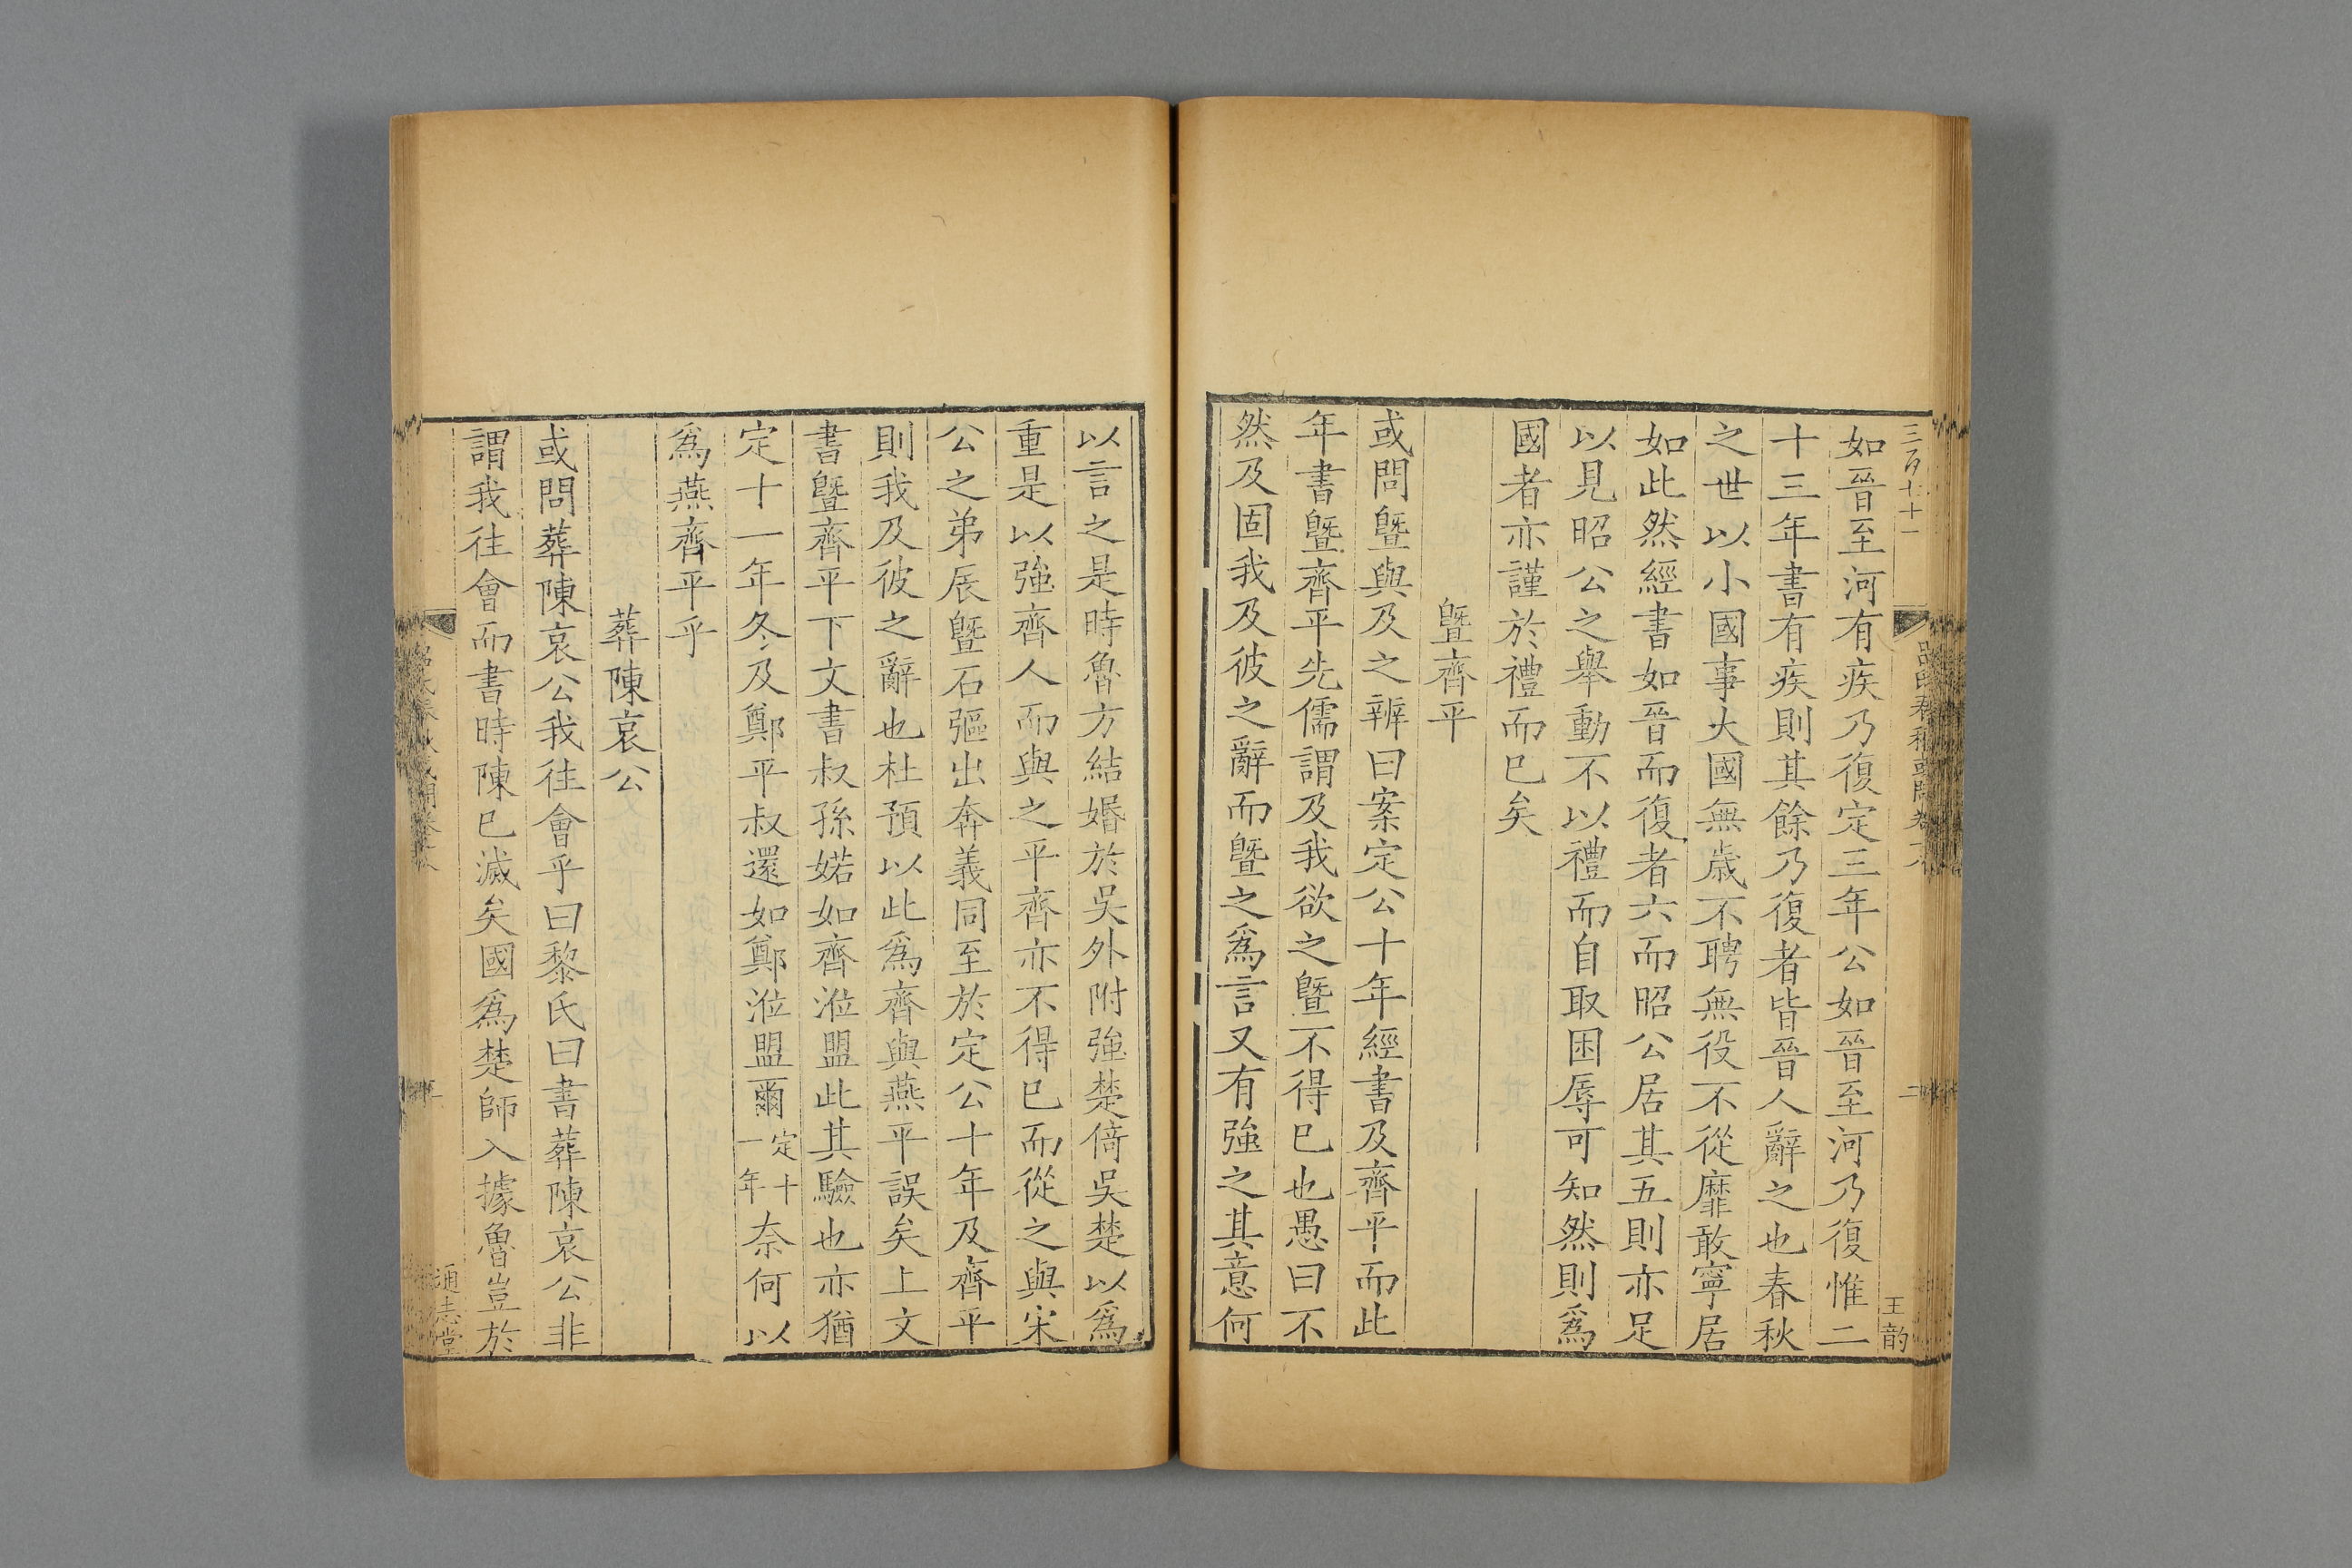 三百七十一
王韵
如晉至河有疾乃復定三年公如晉至河乃復惟二
十三年書有疾則其餘乃復者皆晉人辭之也春秋
之世以小國事大國無歲不聘無役不從靡敢寧居
如此然經書如晉而復者六而昭公居其五則亦足
以見昭公之舉動不以禮而自取困辱可知然則爲
國者亦謹於禮而已矣
曁齊平
或問曁與及之辨曰案定公十年經書及齊平而此
年書曁齊平先儒謂及我欲之曁不得已也愚曰不
然及固我及彼之辭而曁之爲言又有強之其意何
以言之是時魯方結婚於吳外附強楚倚吳楚以爲
重是以強齊人而與之平齊亦不得已而從之與宋
公之弟辰曁石彄出奔義同至於定公十年及齊平
則我及彼之辭也杜預以此爲齊與燕平誤矣上文
書曁齊平下文書叔孫婼如齊涖盟此其驗也亦猶
定十一年冬及鄭平叔還如鄭涖盟爾定十一年奈何以
爲燕齊平乎
葬陳哀公
或問葬陳哀公我往會乎曰黎氏曰書葬陳哀公非
謂我往會而書時陳已滅矣國爲楚師入據魯豈於
通志堂